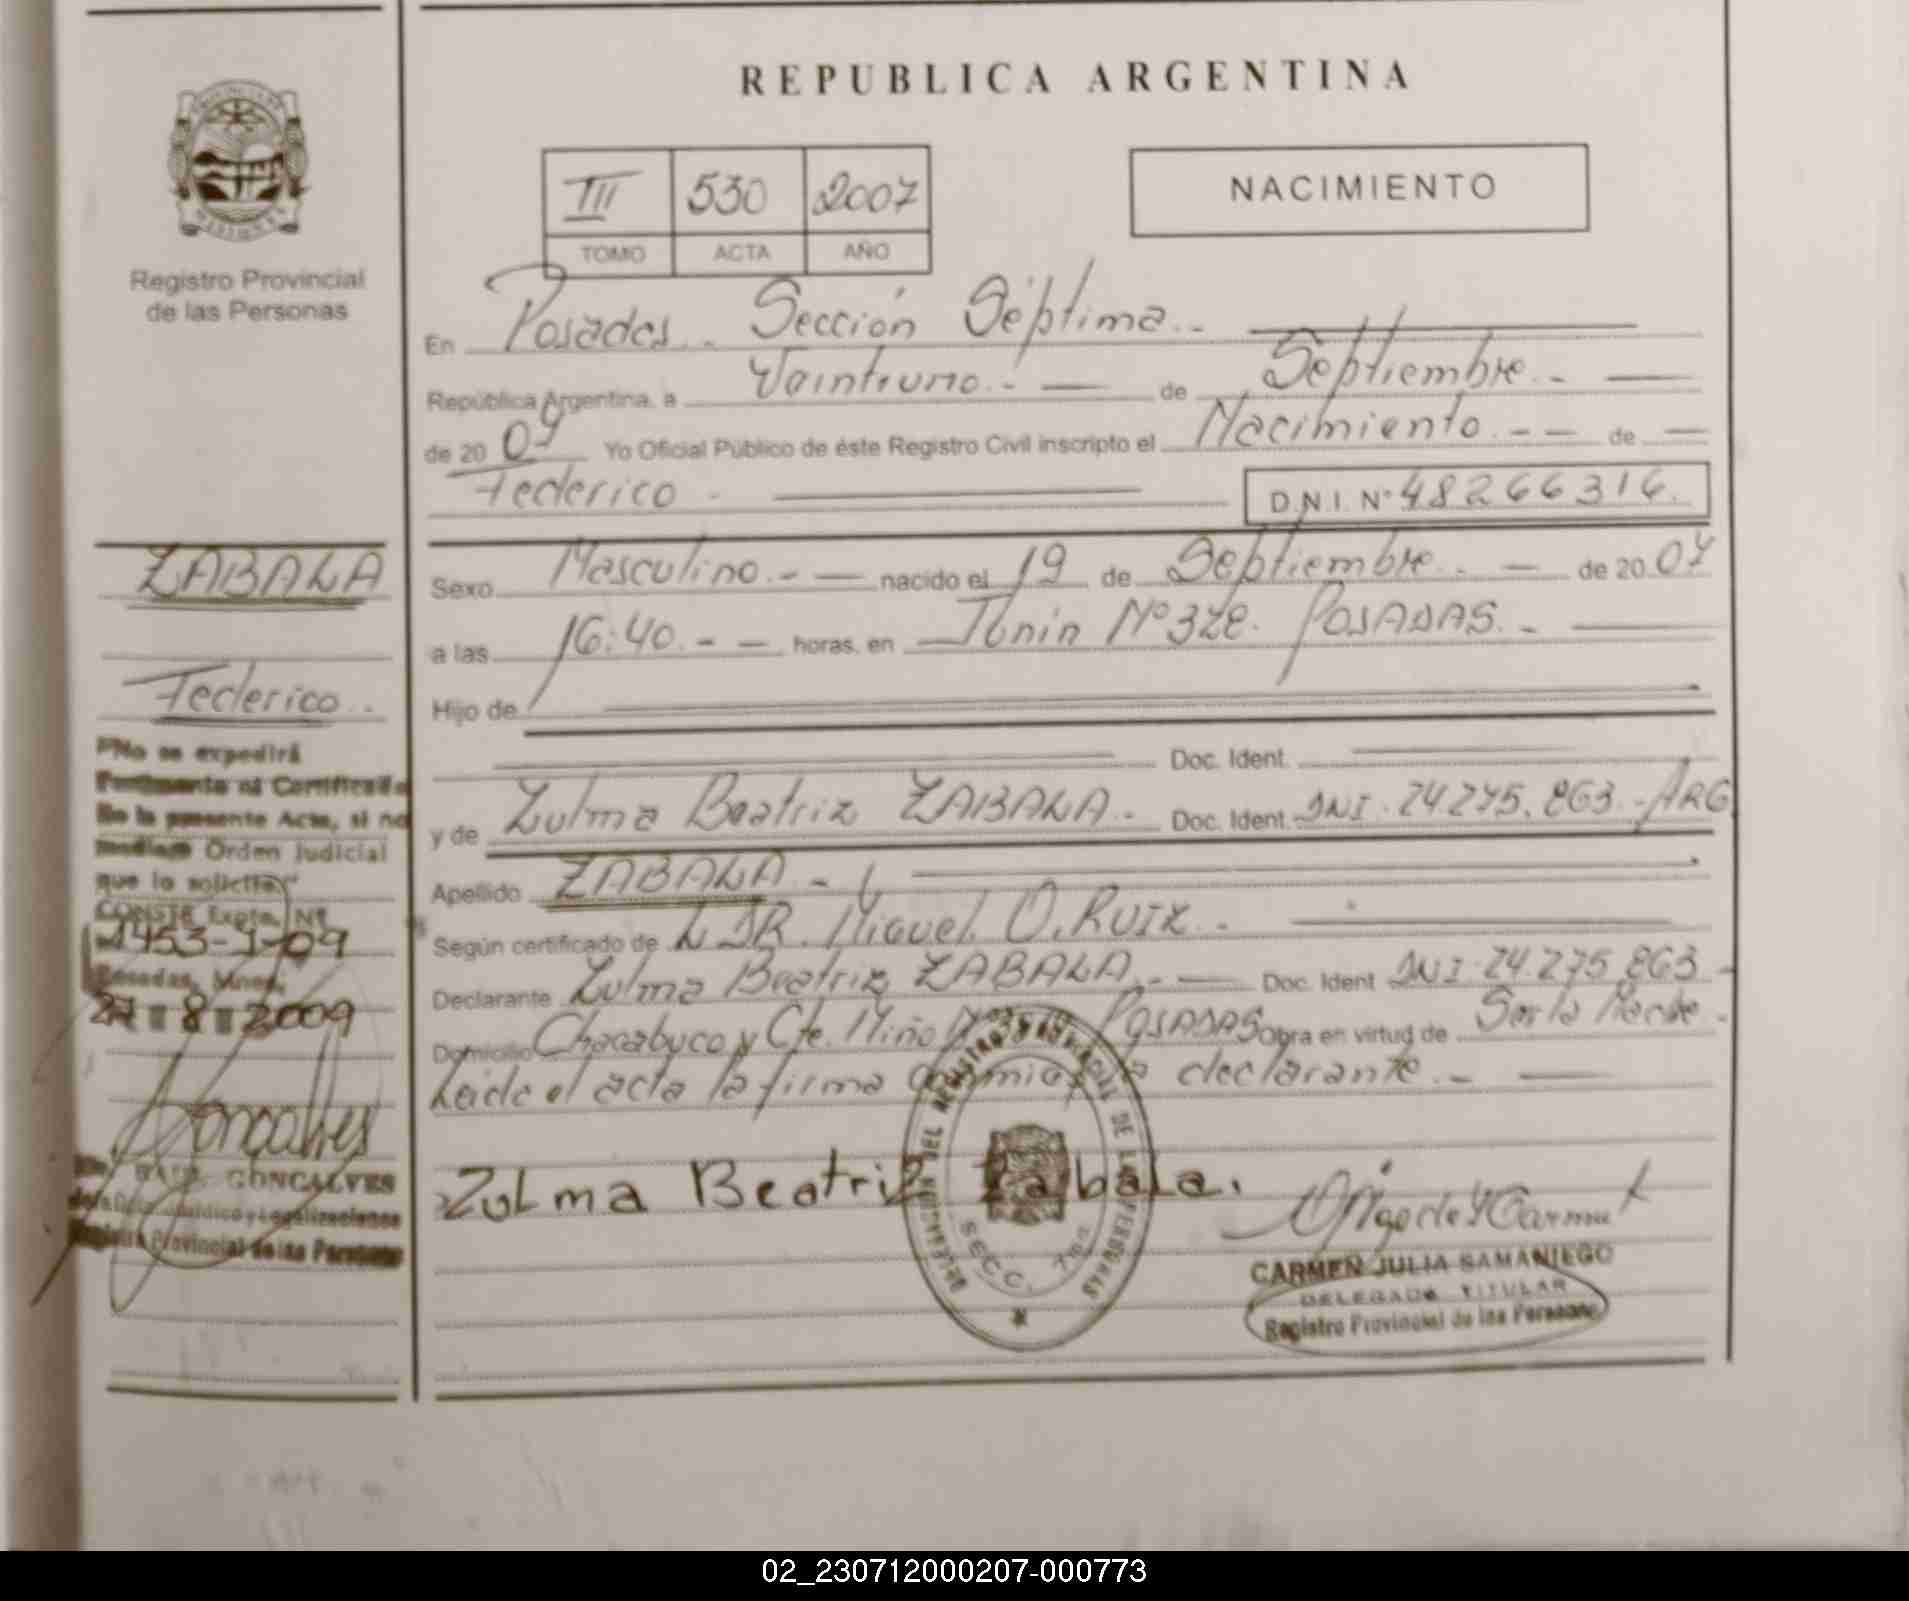 REPUBLICA ARGENTINA
III 530 2007
TOMO ACTA AÑO
NACIMIENTO
Registro Provincial
de las Personas
En Posadas.. Sección Séptima..
República Argentina, a Vaintiuno.- — de Septiembre.. —
de 20 07 Yo Oficial Público de éste Registro Civil inscripto el Nacimiento.-- de —
Federico. D.N.I. Nº 48266316.
ZABALA
Federico..
"No se expedirá
Certificado
De la presente Acta, si no
mediare Orden Judicial
que lo solicite"
CONSTE Expte. Nº
1453-1-09
Posadas, Mnes,
27 8 2009
Goncalves
RAUL GONCALVES
Registro Provincial de las Personas
Sexo Masculino.- — nacido el 19 de Septiembre.. — de 20 07
a las 16:40.- — horas, en Junin Nº 328. POSADAS.-
Hijo de
Doc. Ident.
y de Zulma Beatriz ZABALA.- Doc. Ident. DNI. 24.275.863.-ARG
Apellido ZABALA -
Según certificado de DR. Miguel O. RUIZ.-
Declarante Zulma Beatriz ZABALA.- — Doc. Ident DNI. 24.275.863-
Domicilio Chacabuco y Cte. Miño POSADAS Obra en virtud de Ser la Madre.
Leida el acta la firma conmigo la declarante.- —
Zulma Beatriz Zabala.
DELEGACION DEL REGISTRO PROVINCIAL DE LAS PERSONAS
SECC. 7ma
CARMEN JULIA SAMANIEGO
DELEGADO TITULAR
Registro Provincial de las Personas
02_230712000207-000773